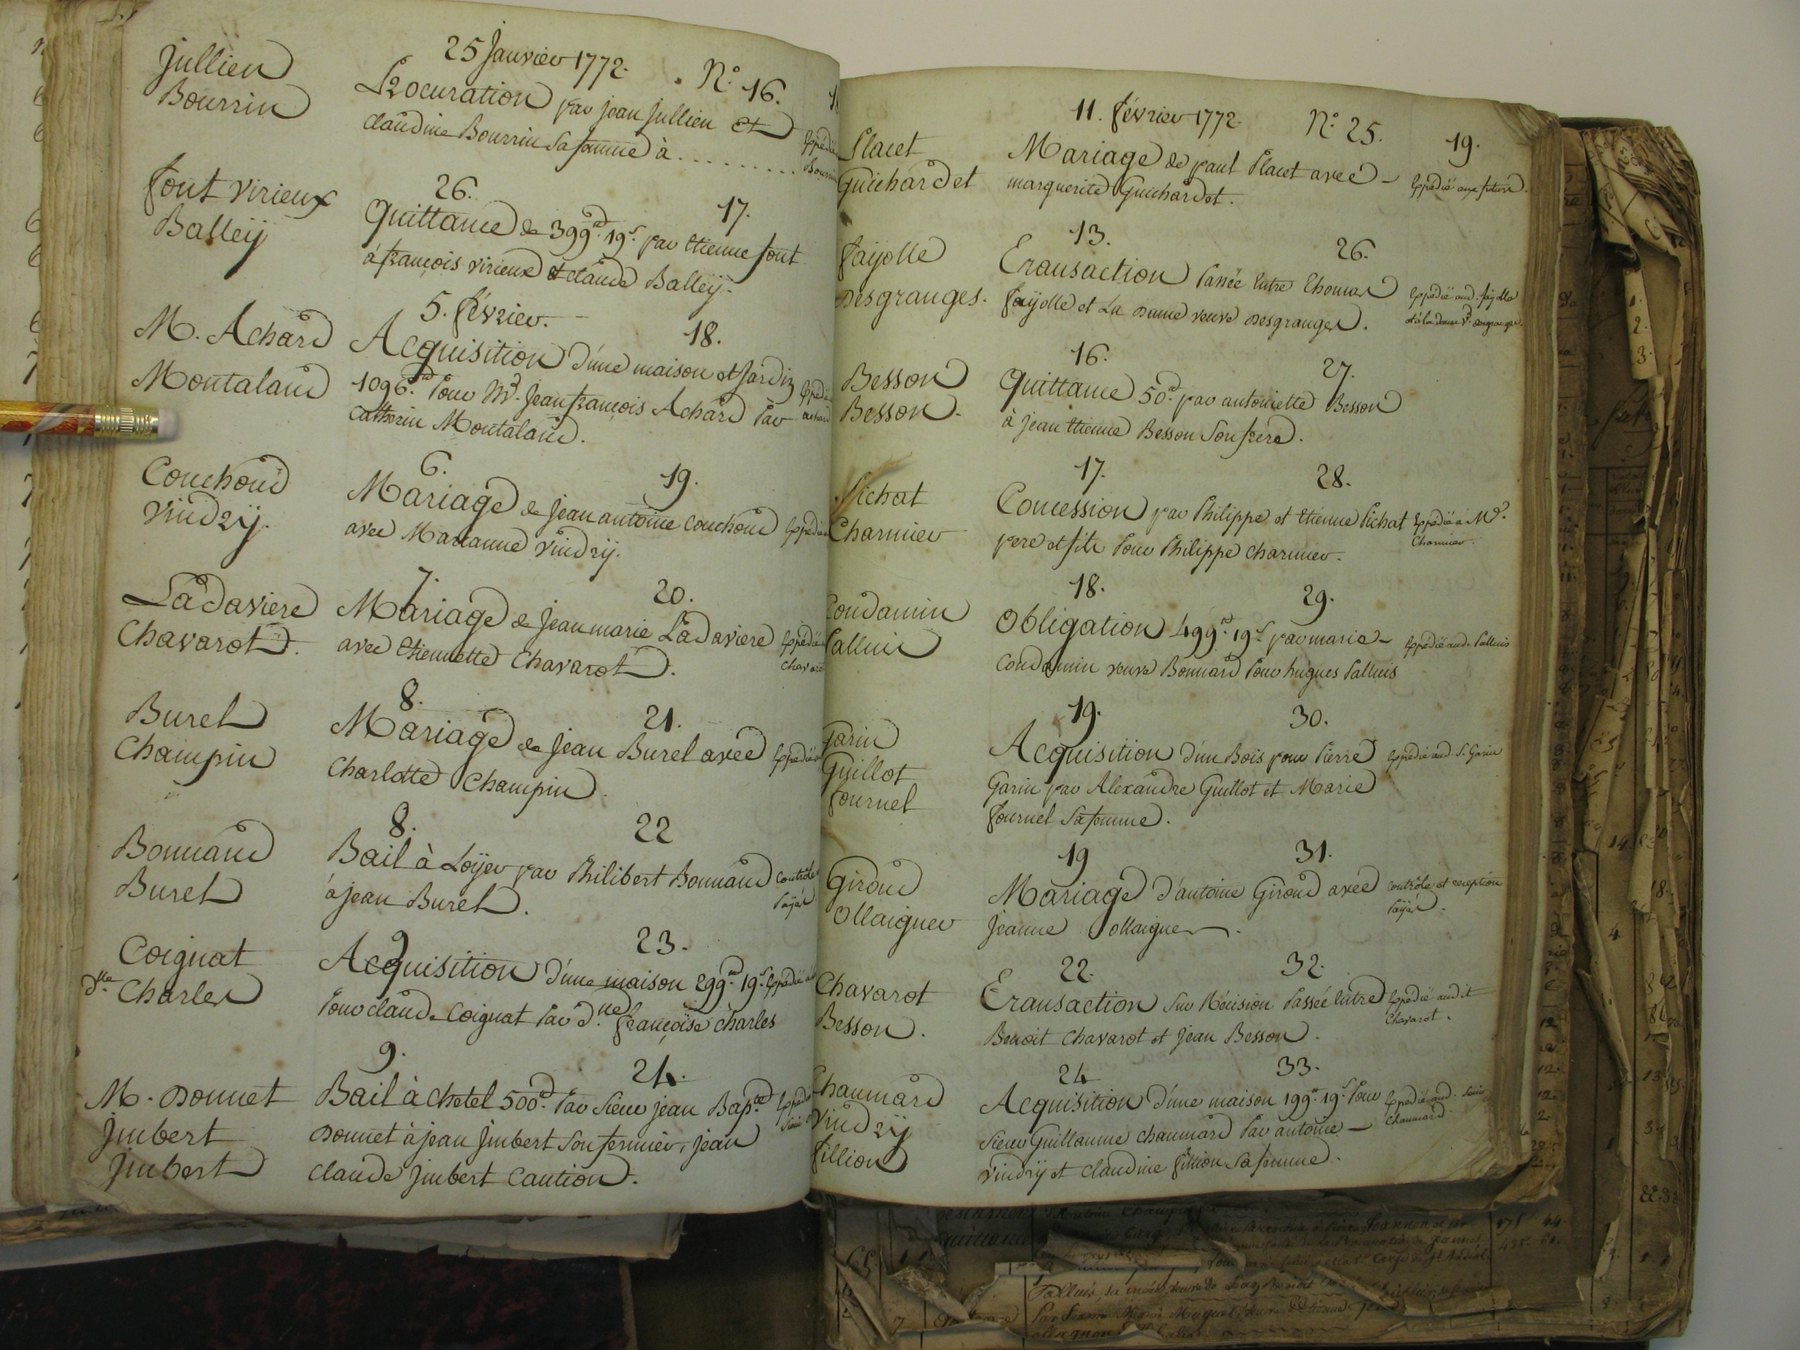 25 Janvier 1772. N.° 16.
Jullien
Bourrin
Procuration par jean Jullien et
claudine Bourrin sa femme à . . . . . . .
26. 17.
font virieux
Balleÿ
Quittance de 399.# 19.s par etienne font
à françois virieux et claude Balleÿ.
5. février. 18.
M. Achard
Montaland
Acquisition d'une maison et Jardin
1096.# Pour M.r Jean françois Achard Par
Catherin Montaland.
6. 19.
Couchoud
Vindrÿ.
Mariage de Jean antoine Couchoud
avec Marianne Vindrÿ.
7. 20.
Ladaviere
Chavarot.
Mariage de Jean marie Ladaviere
avec Etiennette Chavarot.
8. 21.
Burel
Champin
Mariage de Jean Burel avec
Charlotte Champin.
8. 22
Bonnand
Burel
Bail à Loÿer par Philibert Bonnand
à Jean Burel.
controle
Payé
9 23.
Coignat
d.lle Charles
Acquisition d'une maison 299.# 19.s
Pour claude Coignat Par d.lle françoise charles
9. 24.
M. Donnet
Jmbert
Jmbert
Bail à chetel 500.# Par sieur jean Bap.te
Donnet à jean Jmbert son fermier, jean
claude Jmbert Caution.
11. février 1772. N.° 25. 19.
Placet
Guichardet
Mariage de paul Placet avec
marguerite Guichardet.
Expedié aux futurs.
13. 26.
fayolle
Desgranges.
Transaction Passée Entre Thomas
fayolle et La Dame veuve Desgranges.
Expedié aud. fayolle
et à la dame V.e desgranges.
16. 27.
Besson
Besson.
Quittance 50.# par antoinette Besson
à Jean Etienne Besson Son frère.
17. 28.
Pichat
Charmier
Concession par Philippe et Etienne Pichat
pere et fils Pour Philippe charmier.
Expedié à M.r
Charmier.
18. 29.
Condamin
Palluis
Obligation 499.# 19.s par marie
Condamin veuve Bonnard Pour hugues Palluis
Expedié aud. Palluis
19. 30.
Garin
Guillot
fournel
Acquisition d'un Bois pour Pierre
Garin par Alexandre Guillot et Marie
fournel Sa femme.
Expedié aud. S. Garin
19 31.
Giroud
Ollaignier
Mariage d'antoine Giroud avec
Jeanne Ollaignier.
controle et reception
Payés.
22. 32.
Chavarot
Besson.
Transaction Sur Récision Passée Entre
Benoit Chavarot et Jean Besson.
Expedié audit
Chavarot.
24 33.
Chaumard
Vindrÿ
fillion
Acquisition d'une maison 199.# 19.s Pour
sieur Guillaume chaumard Par antoine
Vindrÿ et Claudine fillion Sa femme.
Expedié aud. Sieur
Chaumard.